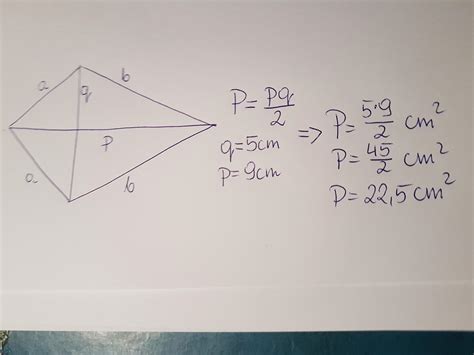 a b
q
p
a b
P = pq/2
q = 5cm
p = 9cm
⇒ P = 5·9/2 cm²
P = 45/2 cm²
P = 22,5 cm²